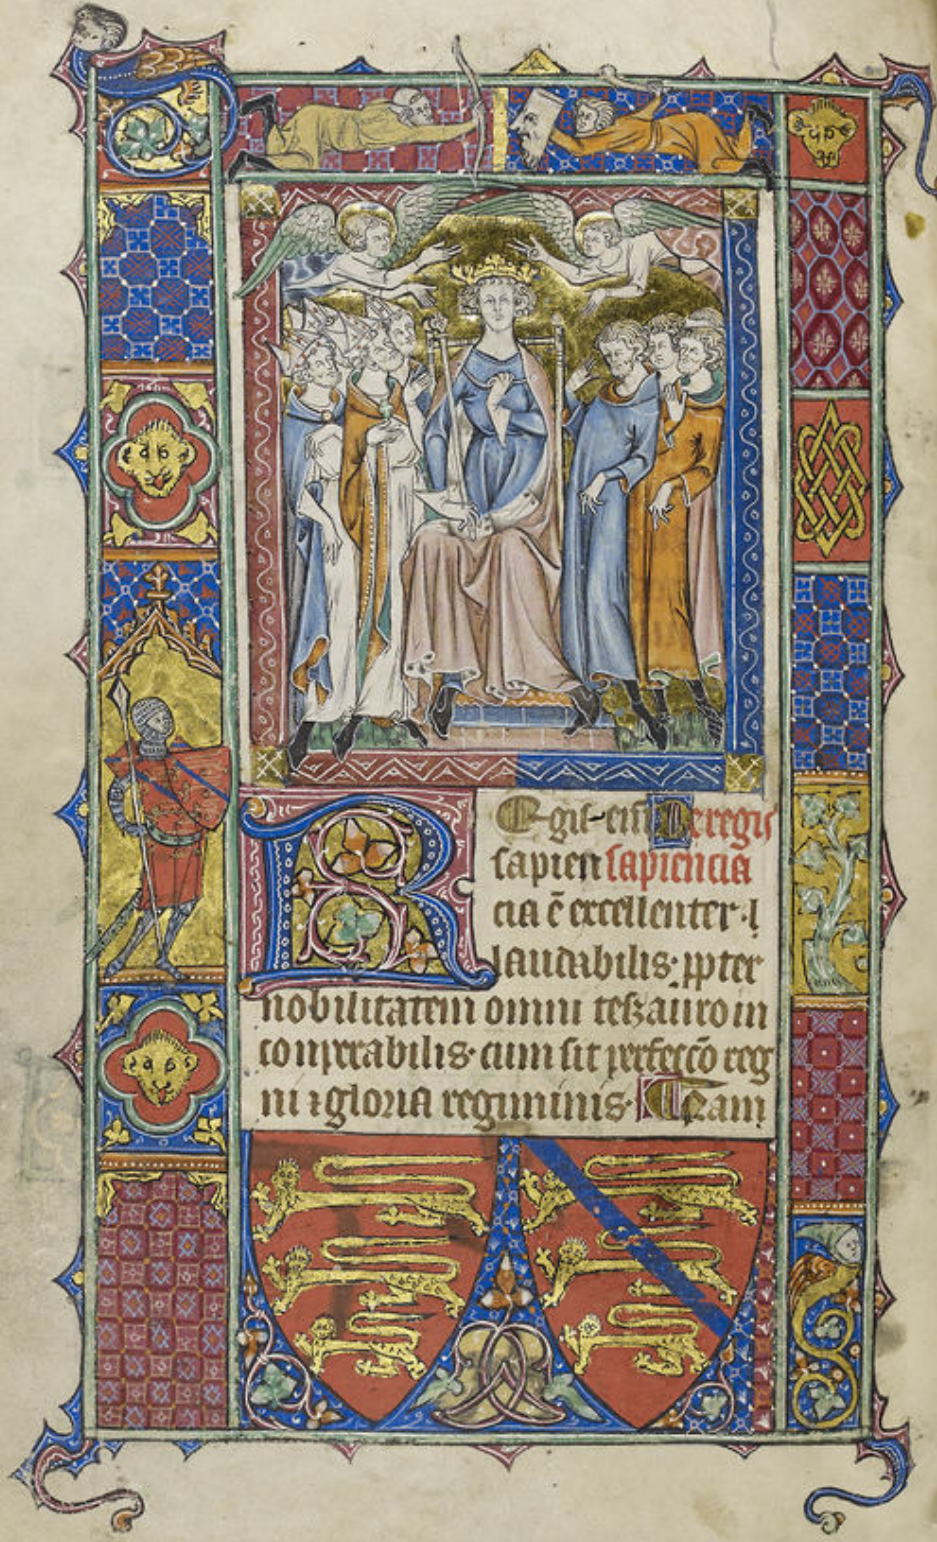 Egis eiꝰ De regis
sapien sapiencia
cia ē excellenter ⁊
laudabilis· ꝓpter
nobilitatem omni tehzauro in
conperabilis· cum sit perfeccō reg
ni ⁊ gloria regiminis· Tam